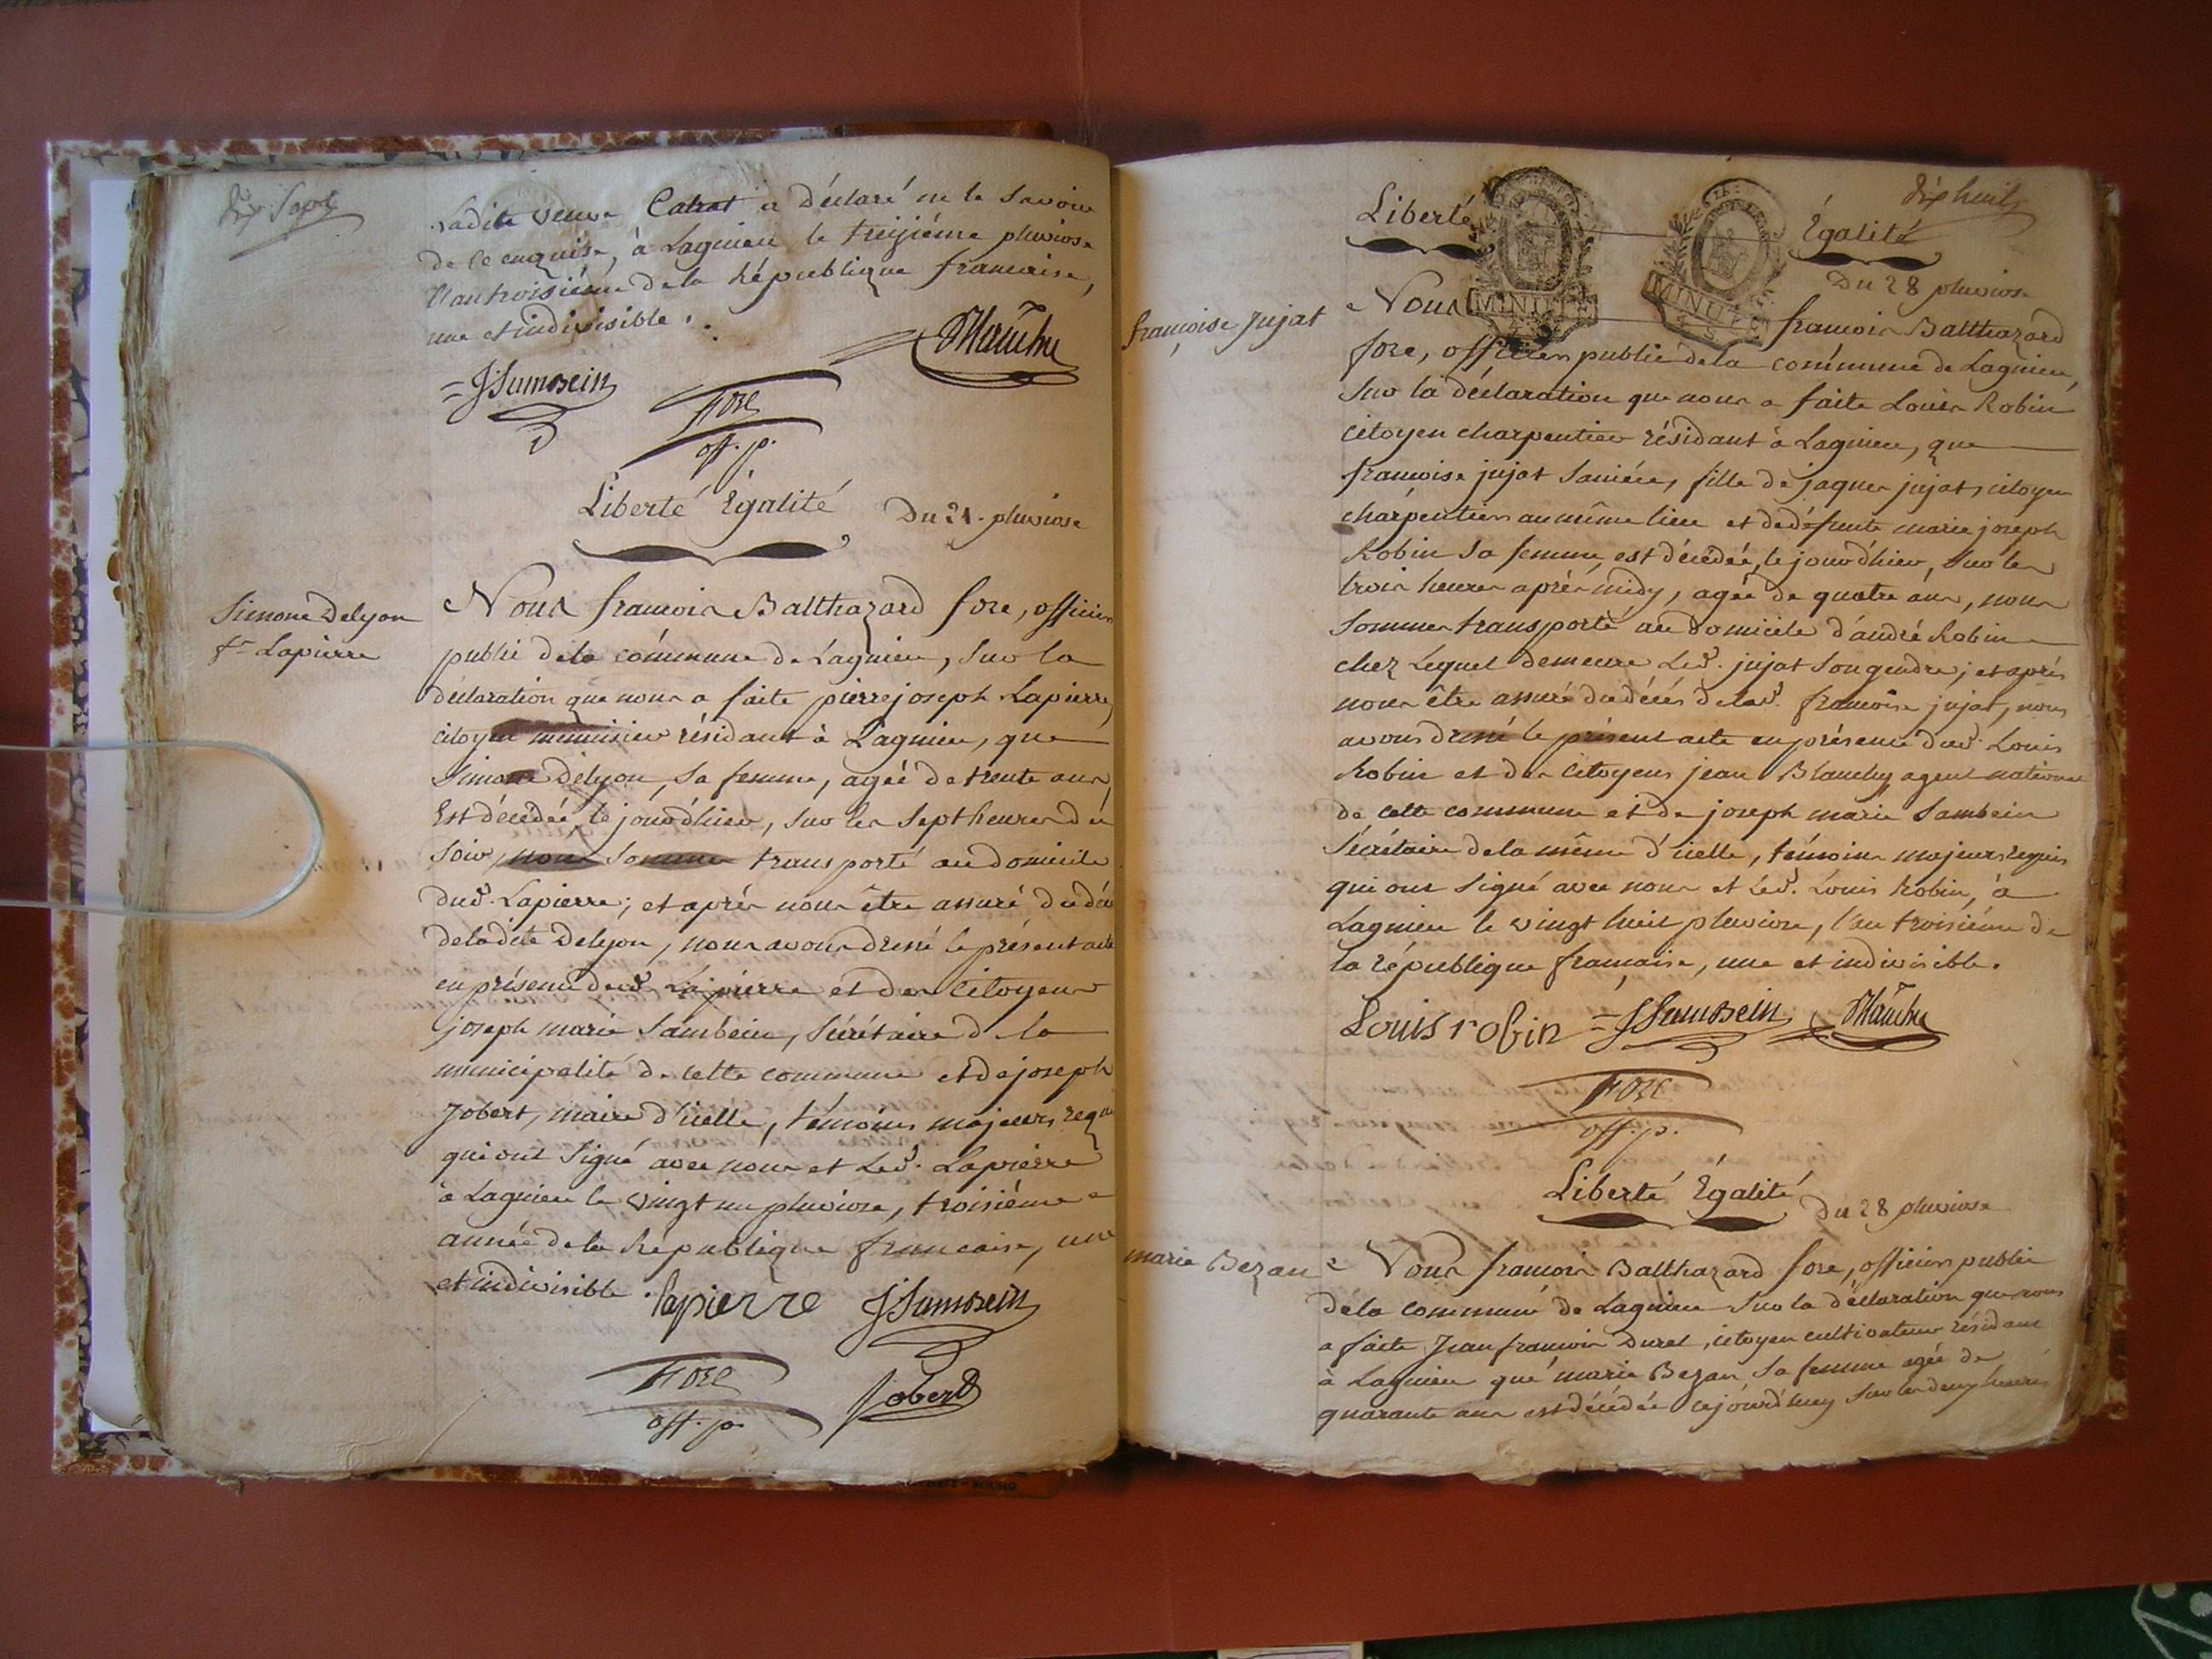 dix Sept
Ladite veuve Catrat a déclaré ne le savoir
de ce enquise, à Lagnieu le treizième pluviose
l'an troisième de la République francaise,
une et indivisible.
JSambein
Blanchy
fore
off. p.
Liberté Égalité
Du 21. pluviose
Simone Delyon
fe Lapierre
Nous francois Balthazard fore, officier
public de la commune de Lagnieu, sur la
déclaration que nous a faite pierre joseph Lapierre,
citoyen menuisier résidant à Lagnieu, que
Simone Delyon, sa femme, agée de trente ans
Est décédée, le jourd'hier, sur les sept heures du
soir, nous sommes transporté au domicile
dud. Lapierre; et après nous être assuré du décè
de ladite Delyon, nous avons dressé le présent acte
en présence dud. Lapierre et des Citoyens
joseph marie Sambein, sécrétaire de la
municipalité de cette commune et de joseph
Jobert, maire d'icelle, témoins majeurs requ
qui ont signé avec nous et Led. Lapierre
à Lagnieu le vingt un pluviose, troisième
année de la République francaise, une
et indivisible.
lapierre
JSambein
fore
off. p.
Jobert
dix huit
Liberté
Égalité
MINUTE
MINUTE
Du 28 pluviose
françoise Jujat
Nous francois Balthazard
fore, officier public de la commune de Lagnieu,
sur la déclaration que nous a faite Louis Robin
citoyen charpentier résidant à Lagnieu, que
francoise jujat sa nièce, fille de jaques jujat, citoyen
charpentier au même lieu et de défunte marie joseph
Robin sa femme, est décédée, le jourd'hier, sur les
trois heures après midy, agée de quatre ans, nous
sommes transporté au domicile d'andré Robin
chez Lequel demeure Led. jujat son gendre; et après
nous être assuré du décès de lad. francoise jujat, nous
avons dressé le présent acte en présence dud. Louis
Robin et des Citoyens jean Blanchy, agent national
de cette commune et de joseph marie Sambein
Sécrétaire de la même d'icelle, témoins majeurs requis
qui ont signé avec nous et Led. Louis Robin, à
Lagnieu le vingt huit pluviose, l'an troisième de
la république francaise, une et indivisible.
Louis robin
JSambein
Blanchy
fore
off. p.
Liberté Égalité
Du 28 pluviose
marie Bezan
Nous francois Balthazard fore, officier public
de la commune de Lagnieu sur la déclaration que nous
a faite Jean francois Duret, citoyen cultivateur résidant
à Lagnieu que marie Bezan sa femme agée de
quarante ans est décédée cejourd'huy sur les deux heures